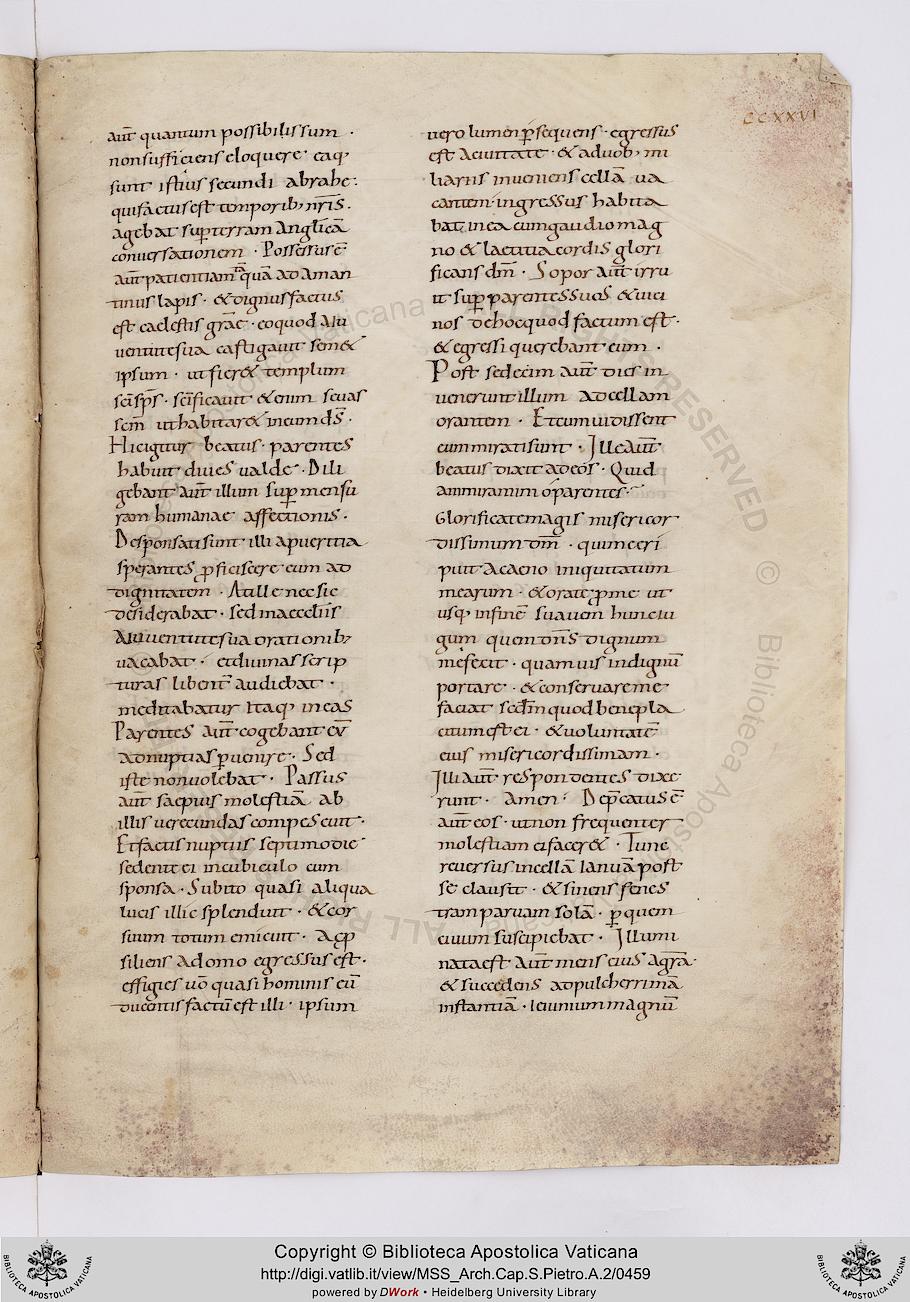 CCXXVI
aut̄ quantum possibilis sum ·
non sufficiens eloquere · eaq;
sunt istius secundi abrahe ·
qui factus est temporib; nr̄is ·
agebat sup terram Anglicā
conuersationem · Possessus ē
aut̄ patientiam quā adaman
tinus lapis · & dignus factus
est caelestis grāe · eo quod a iu
uentute sua castigauit sem&
ipsum · ut fier& templum
sc̄i sp̄s · sc̄ificauit & enim se uas
sc̄m ut habitar& in eum d̄s ·
Hic igitur beatus · parentes
habuit diuies ualde · Dili
gebant aut̄ illum sup mensu
ram humanae affectionis ·
Desponsati sunt illi a pueritia
sperantes proficiscere eum ad
dignitatem · At ille nec sic
desiderabat · sed in aeccl̄iis
A iuuentute sua orationib;
uacabat · et diuinas scrip
turas libent̄ audiebat ·
meditabatur itaq; in eas
Parentes aut̄ cogebant eū
ad nuptias puenire · Sed
iste non uolebat · Passus
aut̄ saepius molestiā ab
illis uerecundas compescuit ·
Et factus nuptiis septimo die
sedente ei in cubiculo cum
sponsa · Subito quasi aliqua
lucis illic splenduit · & cor
suum totum emicuit · Ac p
siliens a domo egressus est ·
effigies uō quasi hominis eū
ducentis factū est illi · ipsum
uero lumen psequens · egressus
est a ciuitate · & a duob; mi
liariis inueniens cellā ua
cantem ingressus habita
bat in ea cum gaudio mag
no & laetitia cordis glori
ficans dm̄ · Sopor aut̄ irru
it sup parentes suos & uici
nos de hoc quod factum est ·
& egressi querebant eum ·
Post sedecim aut̄ dies in
uenerunt illum ad cellam
orantem · Et cum uidissent
eum mirati sunt · Ille aut̄
beatus dixit ad eos · Quid
ammiramini o parentes ·
Glorificate magis misericor
dissimum dm̄ · qui me eri
puit a caeno iniquitatum
mearum · & orate p me ut
usq; in finē suauem hunc iu
gum quem dn̄s dignum
me fecit · quamuis indignū
portare · & conseruare me
faciat sed̄m quod benepla
citum est ei · & uoluntatē
eius misericordissimam ·
Illi aut̄ respondentes dixe
runt · Amen · Depcatus ē
aut̄ eos · ut non frequenter
molestiam ei facer& · Tunc
reuersus in cellā ianuā post
se clausit · & sinens fenes
tram paruam solā · p quem
ciuum suscipiebat · Illumi
nata est aut̄ mens eius a gr̄a
& succedens ad pulcherrimā
instantiā · ieiunium magnū
Copyright © Biblioteca Apostolica Vaticana
http://digi.vatlib.it/view/MSS_Arch.Cap.S.Pietro.A.2/0459
powered by DWork • Heidelberg University Library